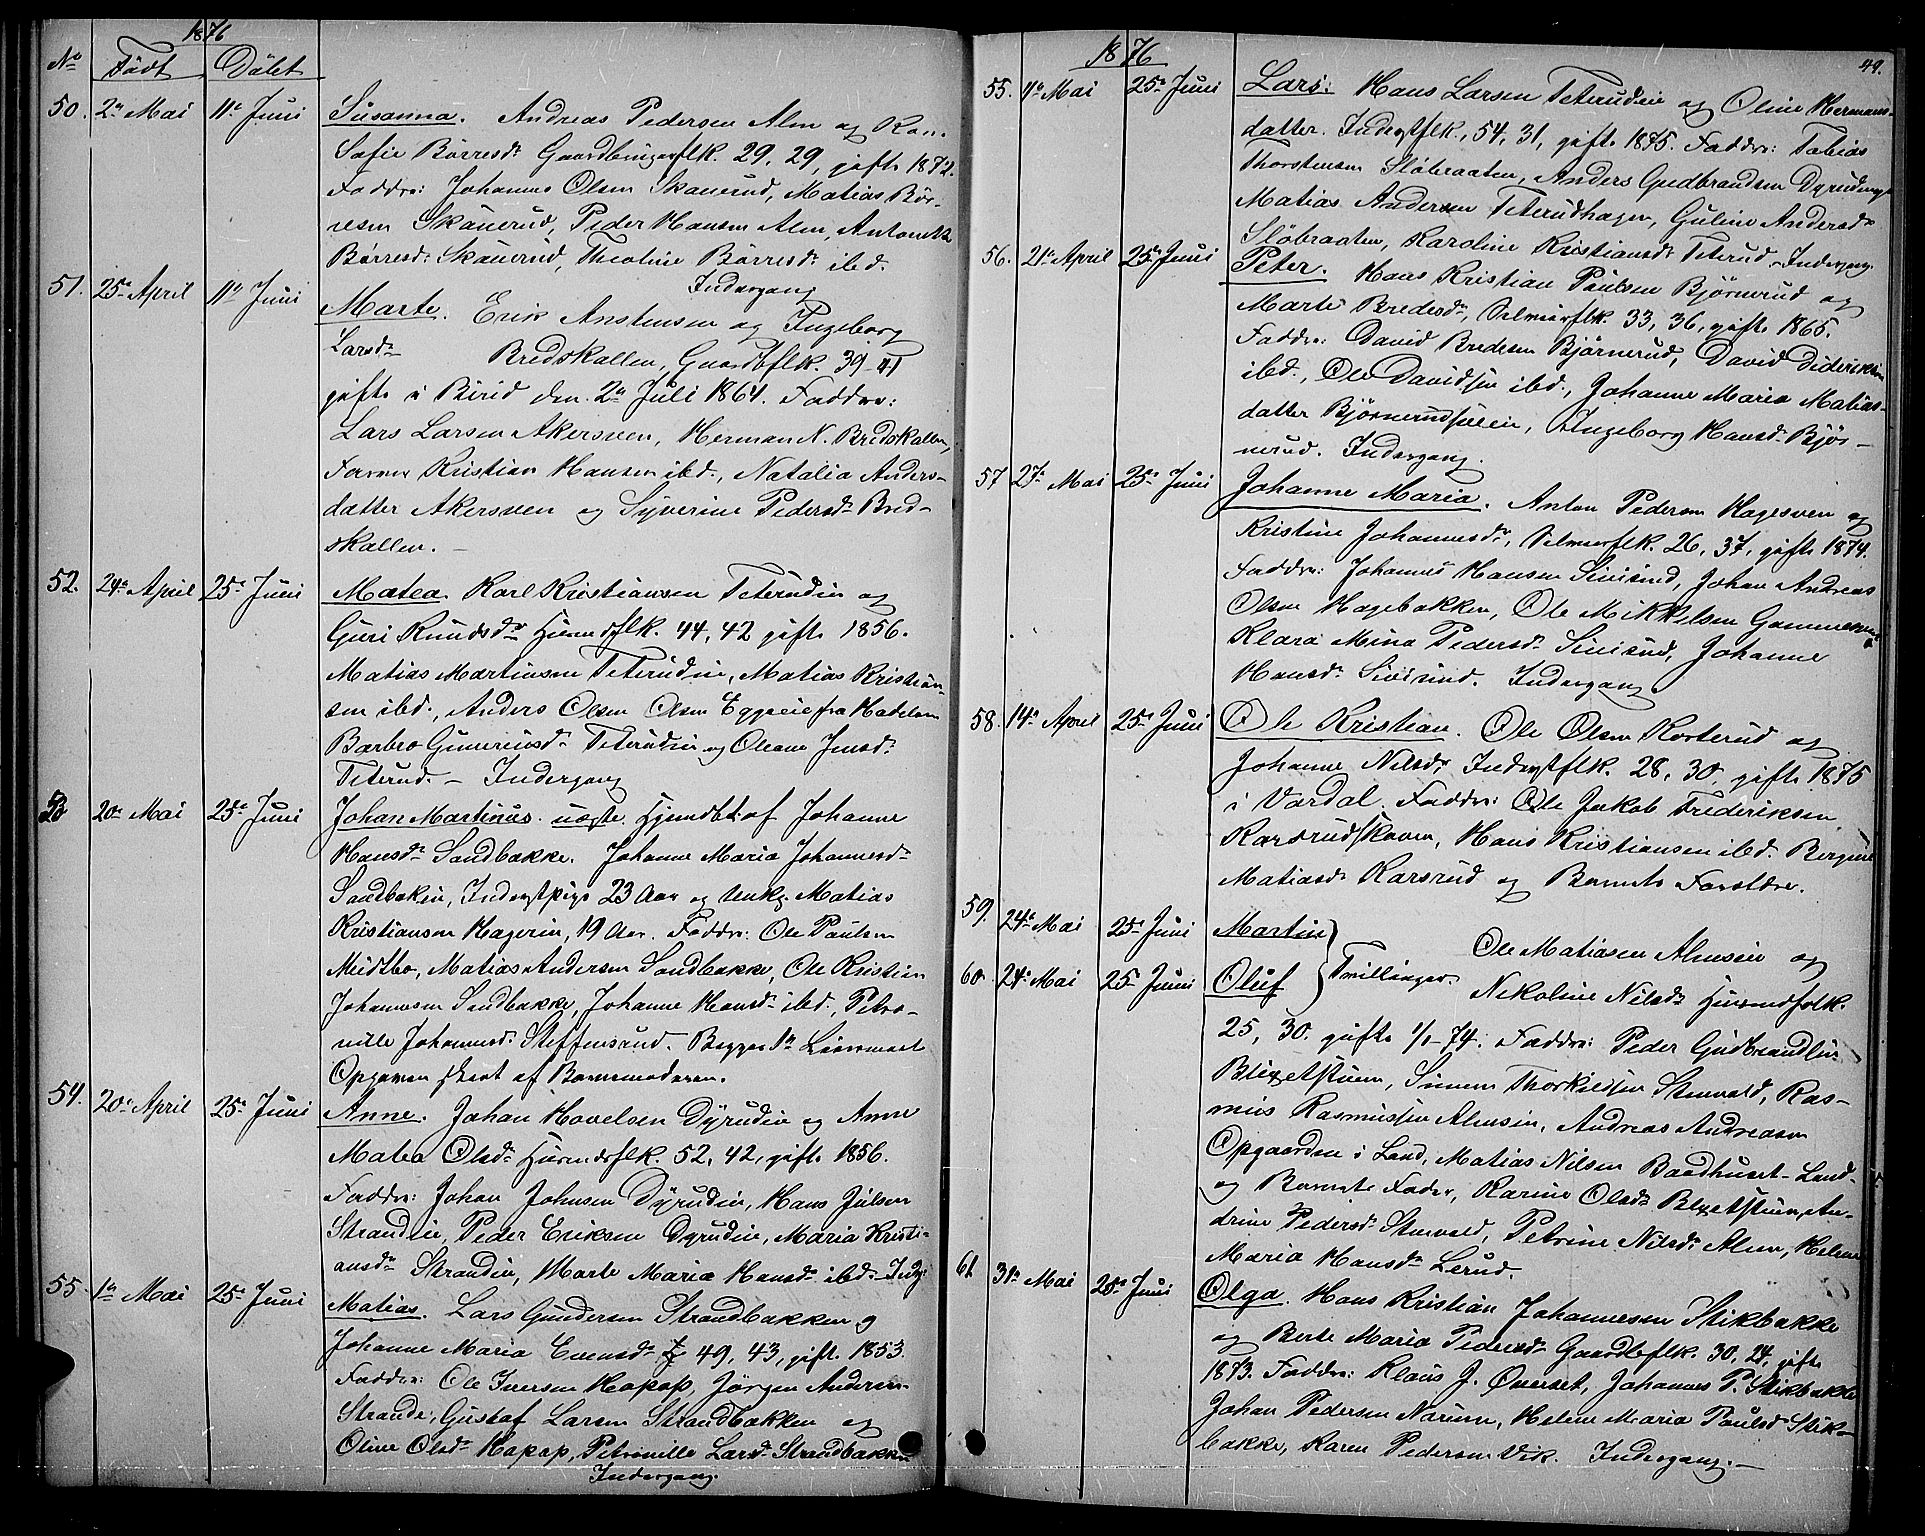 1876
No Födt Döbt
50. 2n Mai 11te Juni Susanna. Andreas Pedersen Alm og
Sofie Börresdr Gaardbrugerflk. 29, 29, gift 1872.
Faddre: Johannes Olsen Skauerud, Matias Bör-
resen Skauerud, Peder Hansen Alm, Antonette
Börresdr Skauerud, Theoline Börresdr ibd.
Indergang
51. 25de April 11te Juni Marte. Erik Anstensen og Ingeborg
Larsdr Bredskallen, Gaardbflk. 39-41
gift i Birid den 2n Juli 1864. Faddre:
Lars Larsen Akersveen, Herman N. Bredskallen,
Kristian Hansen ibd., Natalia Anders-
datter Akersveen og Syverine Pedersdr Bred-
skallen. –
52. 24de April 25de Juni Matea. Karl Kristiansen Teterudeie og
Guri Knudsdr Huusmdsflk. 44, 42 gift 1856.
Matias Martinsen Teterudeie, Matias Kristian-
sen ibd., Anders Olsen Olsen Eggeeie fra Hadeland
Barbro Gunerius dr Teterudeie og Oleane Jensdr
Teterud. – Indergang
53 20de Mai 25de Juni Johan Martinus. uægte Hjemdbt: af Johanne
Hansdr Sandbakke. Johanne Maria Johannesdr
Sandbakeie, Inderstpige 23 Aar og Unkg. Matias
Kristiansen Hageeie, 19 Aar. Faddre: Ole Paulsen
Midtbo, Matias Andersen Sandbakke, Ole Kristian
Johannesen Sandbakke, Johanne Hansdr ibd, Petro-
nille Johannesdr Steffensrud. Begges 1ste Leiermaal
Opgaven skeet af Barnemoderen.
54. 20de April 25de Juni Anne. Johan Hovelsen Dyrudeie og Anne
Matea Olsdr Huusmdsflk. 52, 42, gift 1856.
Faddre: Johan Johnsen Dyrudeie, Hans Julsen
Strandeie, Peder Eriksen Dyrudeie, Maria Kristi-
ansdr Strandeie, Marte Maria Hansdr ibd. – Indg
55. 1ste Mai 25de Juni Matias. Lars Gundersen Strandbakken og
Johanne Maria Evensdr 49, 43, gift 1853.
Faddre: Ole Iversen Hapap, Jörgen Andersen
Strande, Gustaf Larsen Strandbakken og
Oline Olsdr Hapap, Petronille Larsdr Strandbakken
Indergang.
1876
49.
55. 4de Mai 25de Juni Lars: Hans Larsen Teterudeie og Oline Hermans-
datter. Inderstflk., 54, 31, gift 1875. Faddre: Tobias
Thorstensen Slöbraaten, Anders Gudbrandsen
Matias Andersen Teterudhagen, Guline Andersdr
Slöbraaten, Karoline Kristiansdr Teterud. – Indergang.
56. 21de April 25de Juni Peter. Hans Kristian Paulsen Björnerud og
Marte Bredesdr, Selveierflk. 33, 36, gift 1865.
Faddre: David Bredesen Björnerud, David Didriksen
ibd., Ole Davidsen ibd., Johanne Maria Matias-
datter Björnerudsveen, Ingeborg Hansdr Björ-
nerud. Indergang.
57 27de Mai 25de Juni Johanne Maria. Anton Pedersen Hagesveen og
Kristine Johannesdr, Selveierflk. 26, 37, gift 1874.
Faddre: Johannes Hansen Sivesind, Johan Andreas
Olsen Hagebakken, Ole Mikkelsen
Klara Mina Pedersdr Sivesind, Johanne
Hansdr Sivesind. Indergang
58. 14de April 25de Juni Ole Kristian. Ole Olsen Korterud og
Johanne Nilsdr, Inderstflk. 28, 30 gift 1875
i Vardal. Faddre: Ole Jakob Frederiksen
Karsrudskoven, Hans Kristiansen ibd. Bergine
Matiasdr Karsrud og Barnets Forældre.
59. 24de Mai 25de Juni Martin
60. 24de Mai 25de Juni Oluf } Tvillinger. Ole Matiasen Almseie og
Nikoline Nilsdr Huusmdfolk.
25, 30. gift 1/1-74. Faddre: Peder Gudbrandsen
Blixetstuen, Simen Thorkildsen Stenvald, Ras-
mus Rasmussen Almseie, Andreas Andreasen
Opgaarden i Land, Matias Nilsen Baadhuset-Land-
og Barnets Fader, Karine Olsdr Blixetstuen, An-
drine Pedersdr Stenvald, Petrine Nilsdr Alm, Helene
Maria Hansdr Lerud.
61 31te Mai 25de Juni Olga. Hans Kristian Johannesen Stikbakke
og Berte Maria Pedersdr Gaardbflk. 30, 24, gift
1873. Faddre: Klaus J. Överset, Johannes P. Stikbakke
Johan Pedersen Narum, Helene Maria Paulsdr Stik-
bakke, Karen Pedersen Vik. Indergang. –